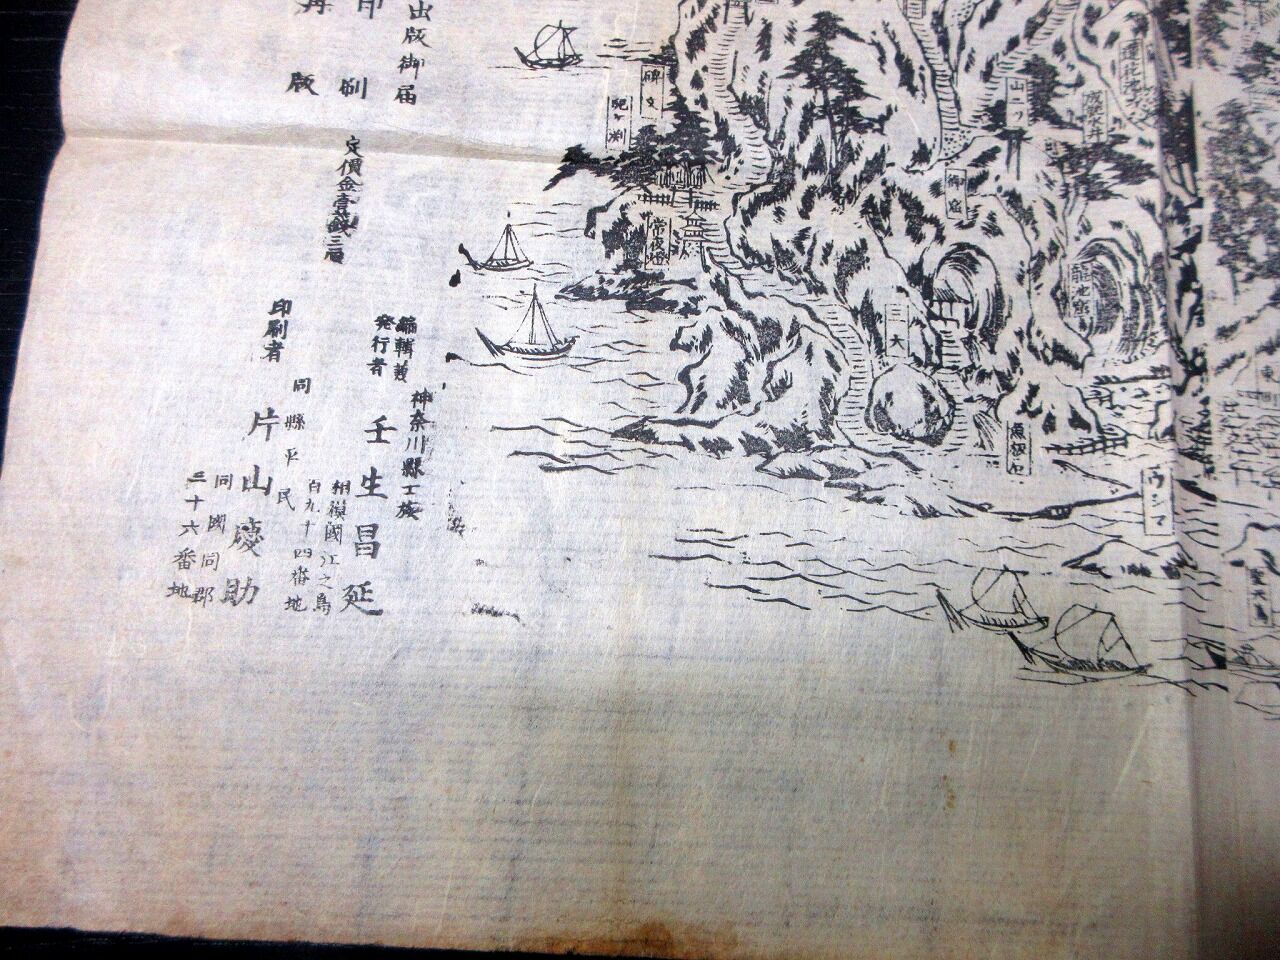 出版御届
印刷
再版
定價金壹銭三厘
編輯兼
発行者
神奈川縣士族
壬生昌延
相模國江之島
百九十四番地
印刷者
同縣平民
片山慶助
同國同郡
三十六番地
碑文
児ヶ淵
常夜燈
山二ツ
御窟
龍池窟
三天
魚板石
ウシマ